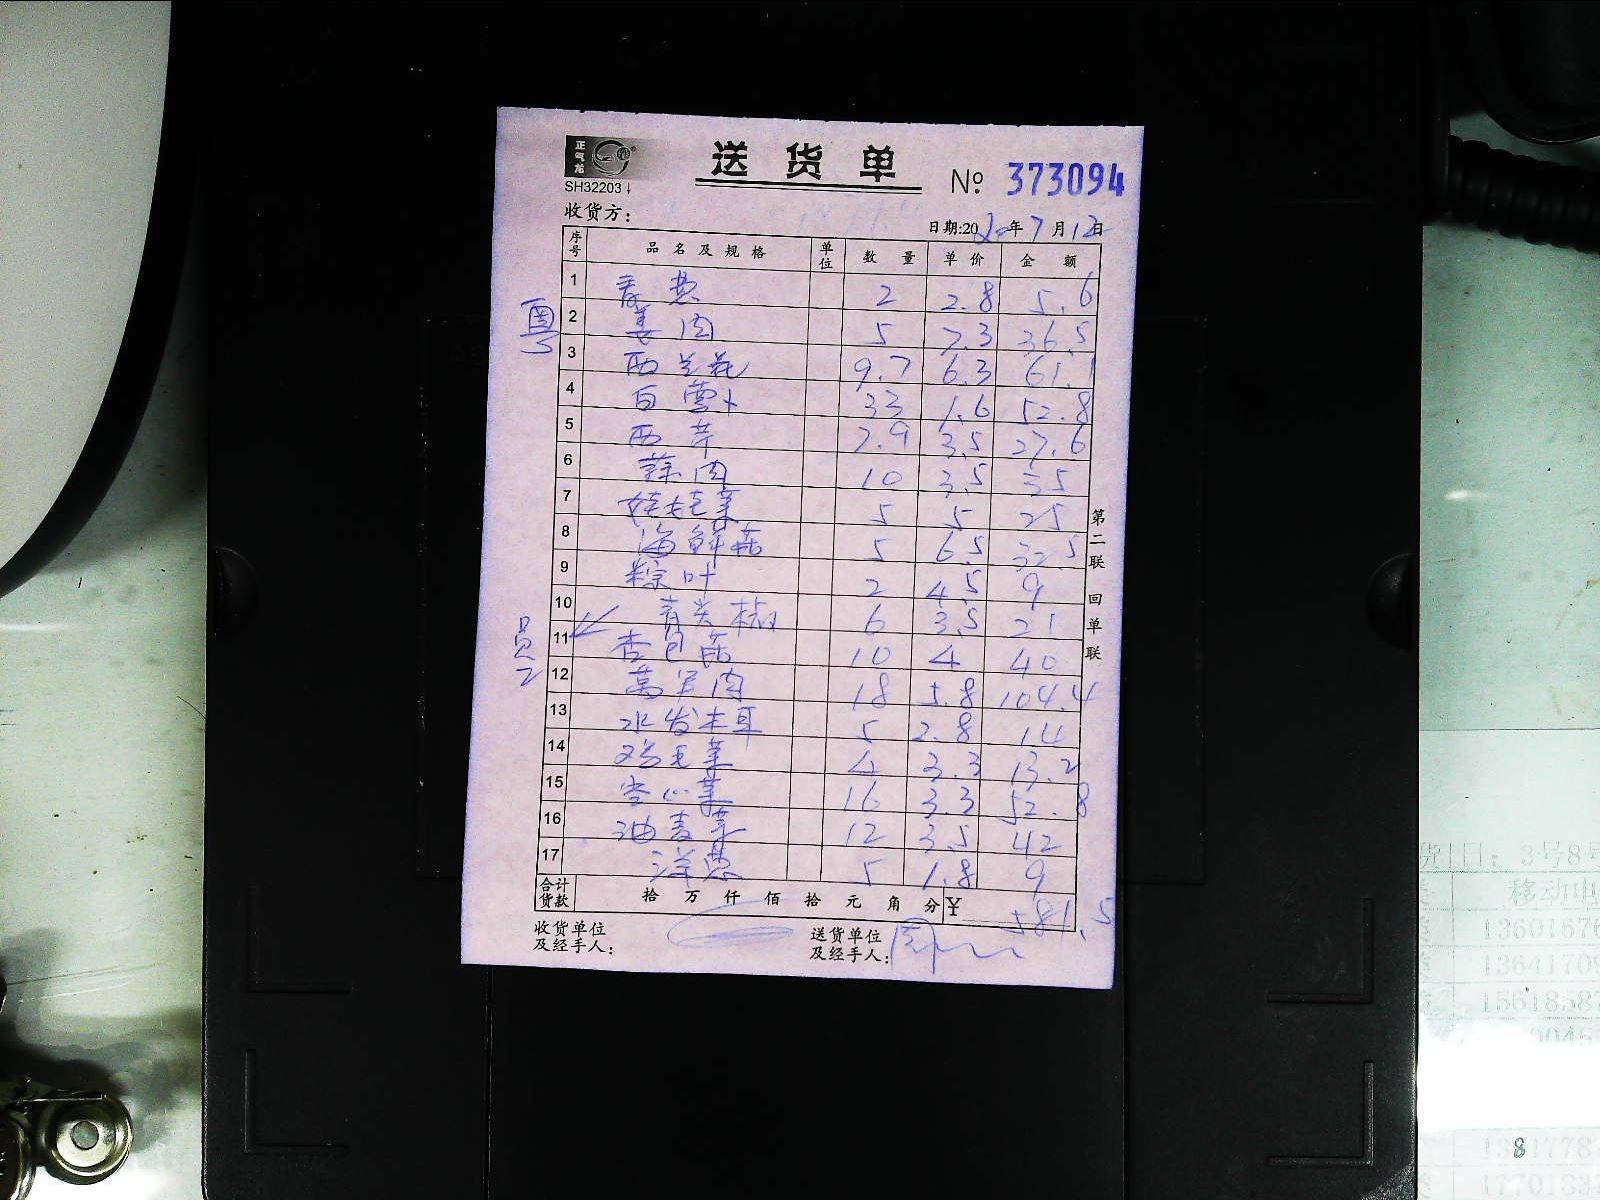 正气龙
送货单
SH32203↓
№ 373094
收货方：
日期:2020年7月12日
序号 品名及规格 单位 数量 单价 金额
1 香葱 2 2.8 5.6
粤
2 姜肉 5 7.3 36.5
3 西兰花 9.7 6.3 61.1
4 白萝卜 33 1.6 52.8
5 西芹 7.9 3.5 27.6
6 蒜肉 10 3.5 35
7 娃娃菜 5 5 25
8 海鲜菇 5 6.5 32.5
9 粽叶 2 4.5 9
10 青尖椒 6 3.5 21
员工
11 杏包菇 10 4 40
12 莴笋肉 18 5.8 104.4
13 水发木耳 5 2.8 14
14 鸡毛菜 4 3.3 13.2
15 空心菜 16 3.3 52.8
16 油麦菜 12 3.5 42
17 洋葱 5 1.8 9
合计货款 拾 万 仟 佰 拾 元 角 分 ¥ 581.5
收货单位及经手人：
送货单位及经手人：
第二联 回单联
货 日: 3号8号
移动电
1360167
1364170
1561858
8